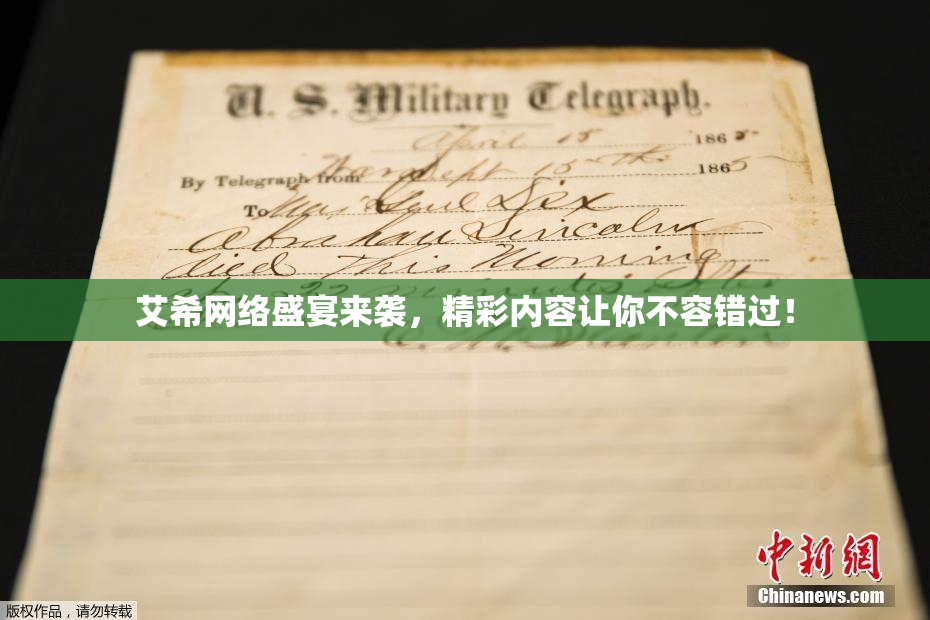 U. S. Military Telegraph.
April 15 1865
By Telegraph from War Dept 15th 1865
To Maj Genl Dix
Abraham Lincoln
died This Morning
at 22 minutes after
艾希网络盛宴来袭，精彩内容让你不容错过！
E. M. Stanton
中新网
Chinanews.com
版权作品，请勿转载